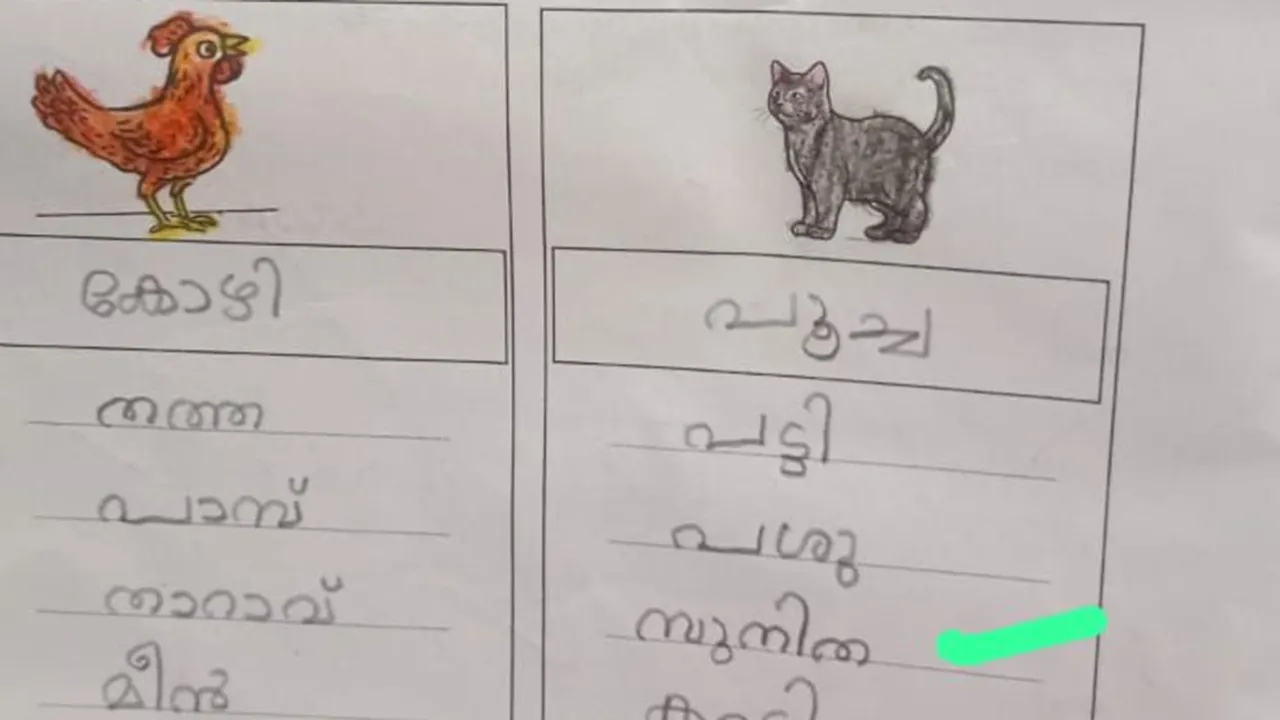 കോഴി
തത്ത
പാമ്പ്
താറാവ്
മീൻ
പൂച്ച
പട്ടി
പശു
സുനിത